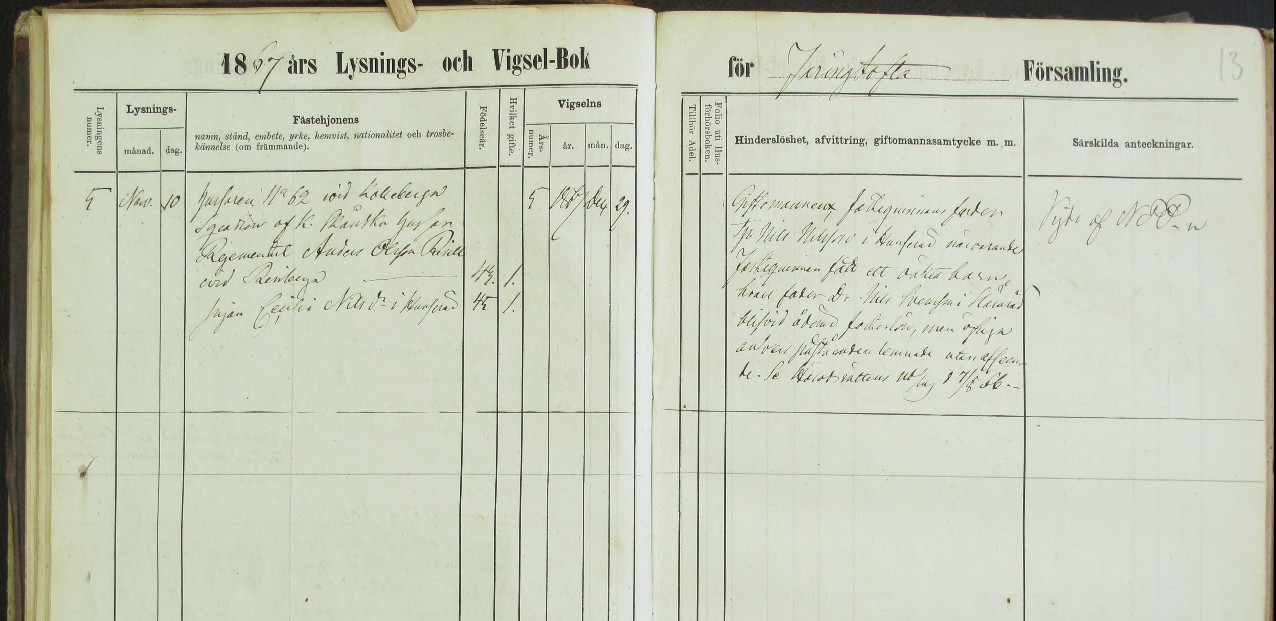 1867 års Lysnings- och Vigsel-Bok
för Järingtofta Församling.
13
Lysningens nummer.
Lysnings-
månad. dag.
Fästehjonens
namn, stånd, embete, yrke, hemvist, nationalitet och trosbe-
kännelse (om främmande).
Födelseår.
Hvilket gifte.
Vigselns
Års-nummer. år. mån. dag.
Tillhör Adel.
Folio uti Hus-förhörsboken.
Hinderslöshet, afvittring, giftomannasamtycke m. m.
Särskilda anteckningar.
5 Nov. 10 Husaren No 62 vid Kolleberga
5 1867 Dec 29.
Sqvadron af K. Skånska Husar
Regementet Anders Olsson
43. 1.
Pigan Cecilia Nils Dr i Hunseröd 45 1.
Giftomannen fästeqvinnans fader
Nils Nilsson i Hunseröd närvarande
Fästeqvinnan födt ett oäkta barn,
hvars fader Dr. Nils Svensson i
blifvit dömd men öfriga
påståenden lemnade utan afseen-
de. Se Häradsrättens 7/8 66.-
Vigde af